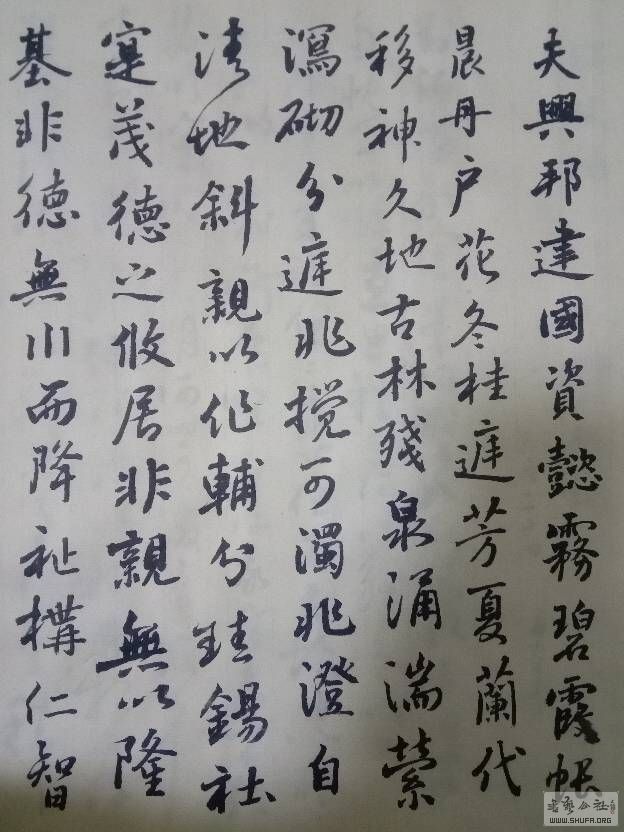 夫興邦建國資懿霧碧霞帳
晨丹户花冬桂庭芳夏蘭代
移神久地古林殘泉涌湍縈
瀉砌分庭非攪可濁非澄自
清地斜親以作輔分珪錫社
寔茂德之攸居非親無以隆
基非德無川而降祉構仁智
书艺公社
WWW.SHUFA.ORG